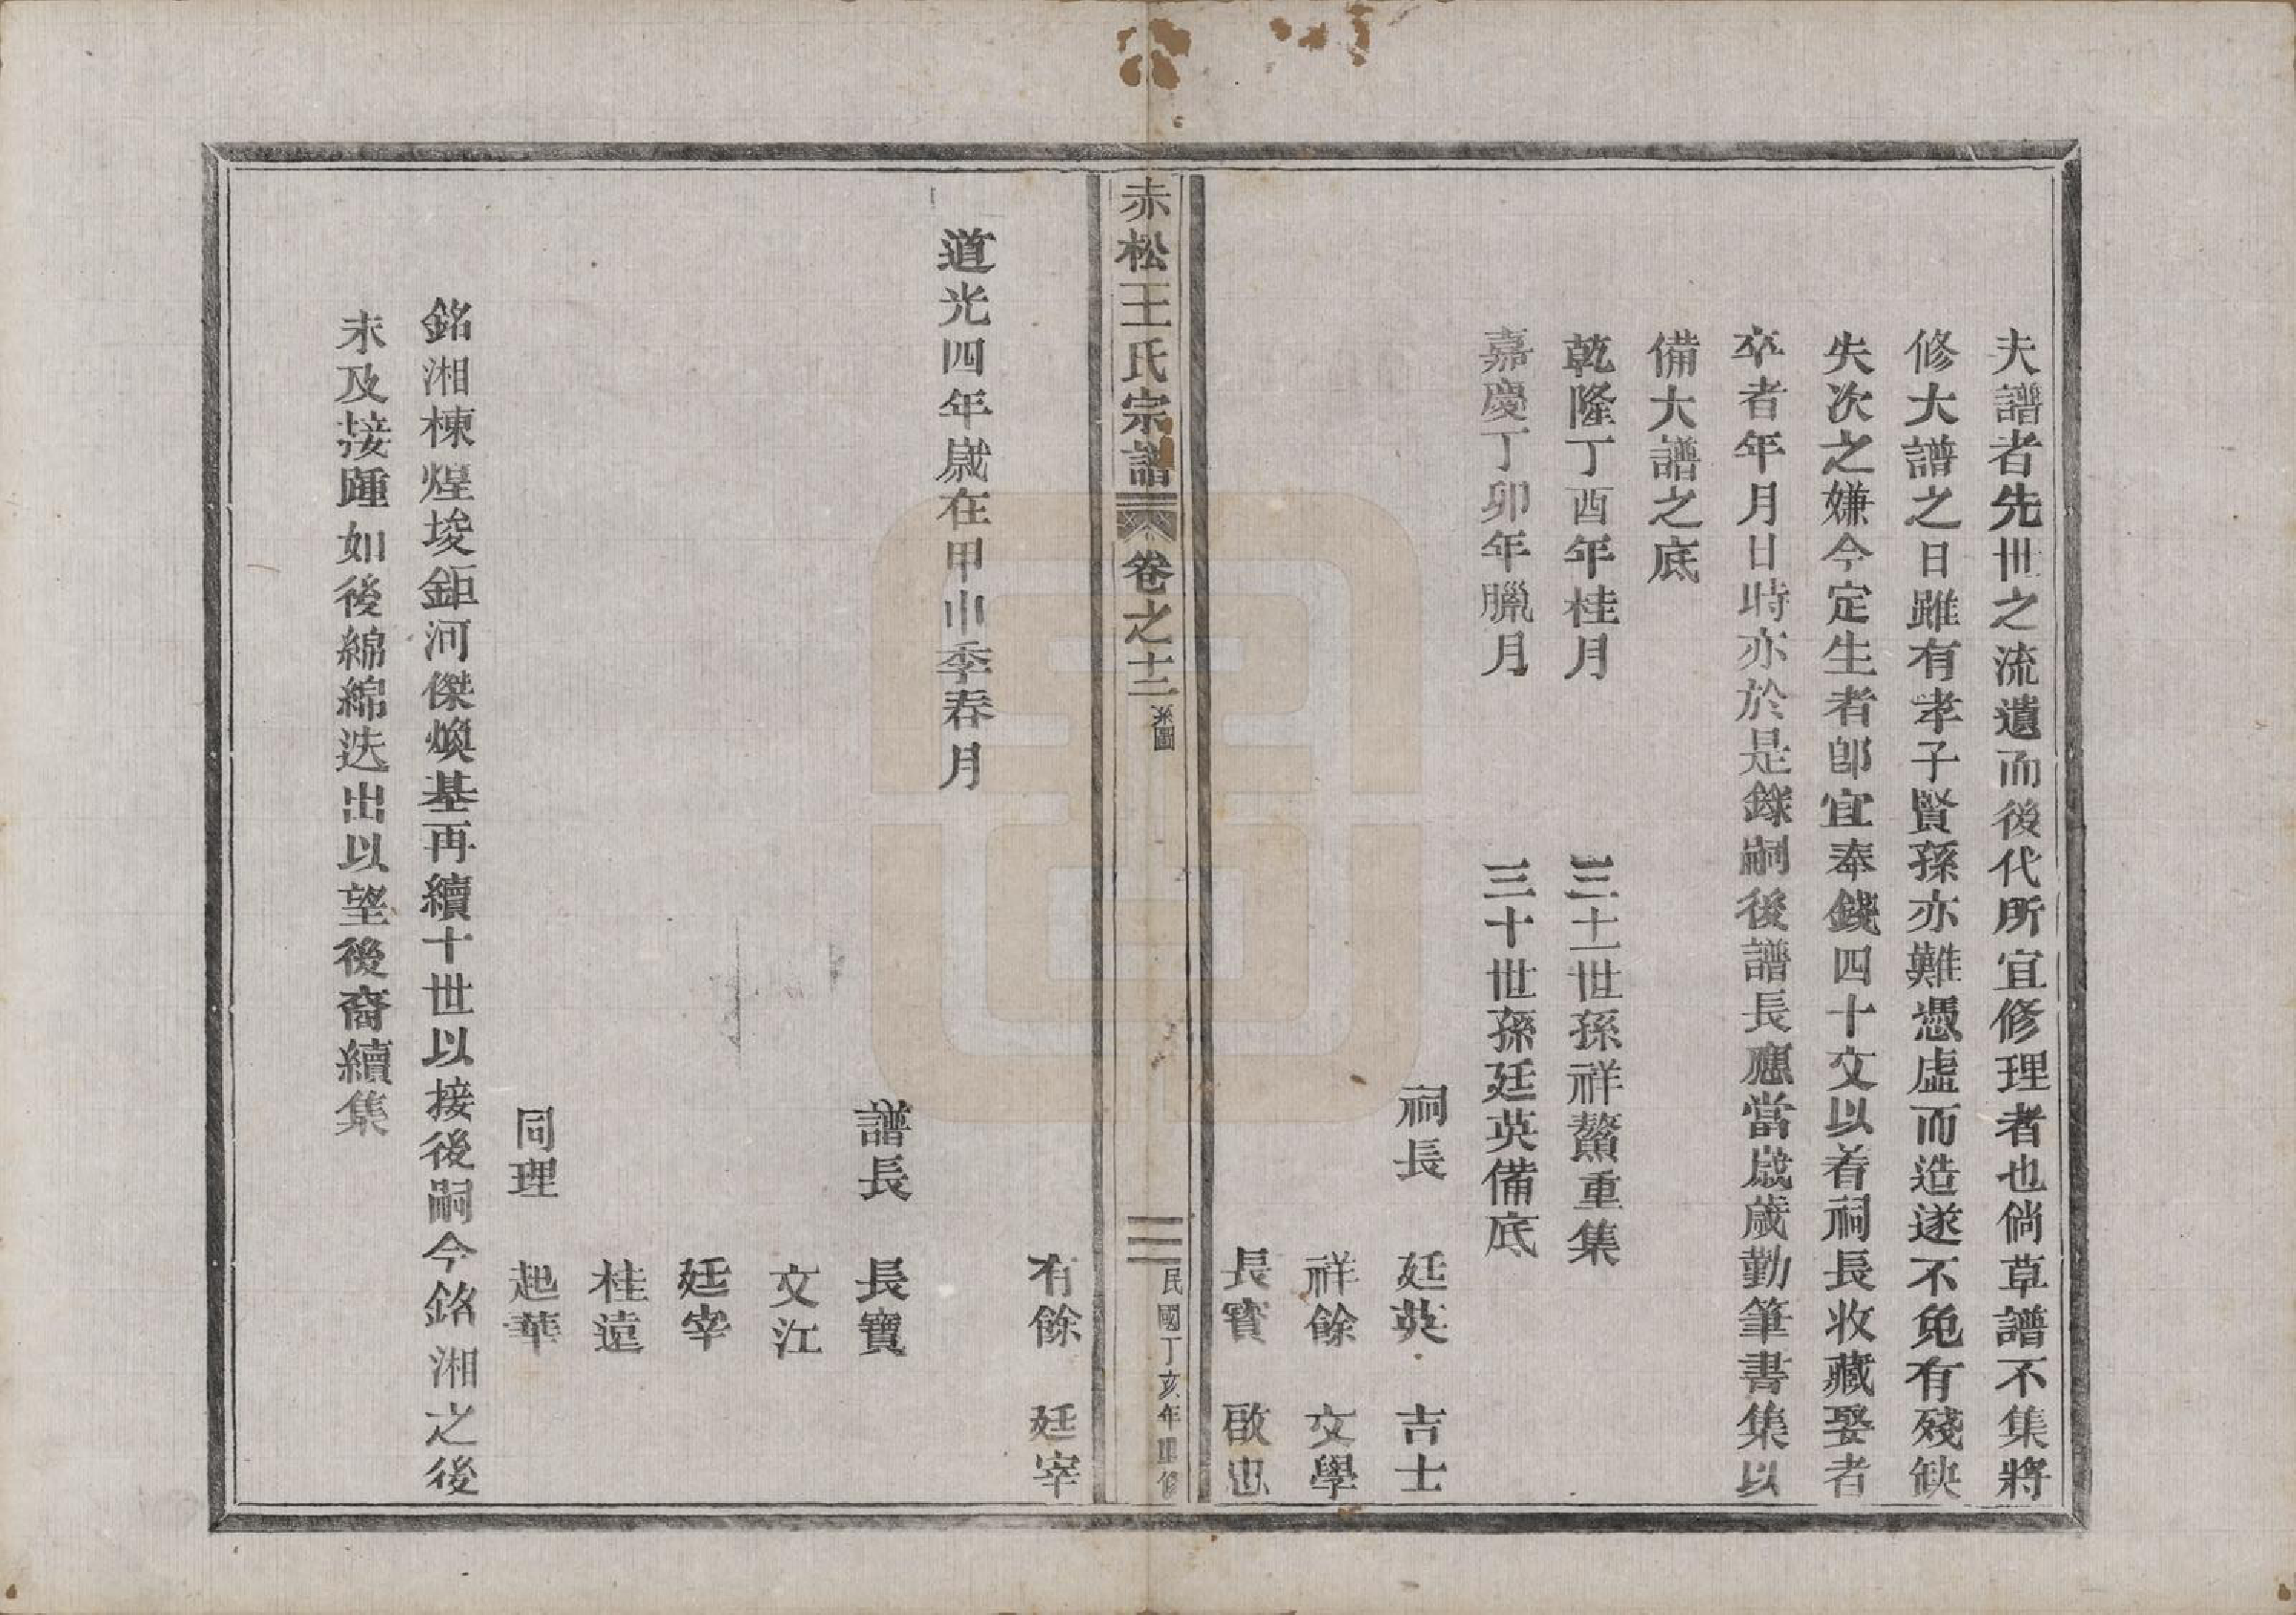 夫譜者先世之流遺而後代所宜修理者也倘草譜不集將
修大譜之日雖有孝子賢孫亦難憑虛而造遂不免有殘缺
失次之嫌今定生者卽宜奉錢四十文以着祠長收藏娶者
卒者年月日時亦於是錄嗣後譜長應當歲歲勤筆書集以
備大譜之底
乾隆丁酉年桂月 三十一世孫祥鰲重集
嘉慶丁卯年臘月 三十世孫廷英備底
祠長 廷英 吉士
祥餘 文學
長賓 啟忠
赤松王氏宗譜 卷之十二 系圖 三 民國丁亥年重修
有餘 廷宰
道光四年歲在甲申季春月
譜長 長寶
文江
廷宰
桂遠
同理 起華
銘湘棟煌埈鉅河傑煥基再續十世以接後嗣今銘湘之後
未及接踵如後綿綿迭出以望後裔續集